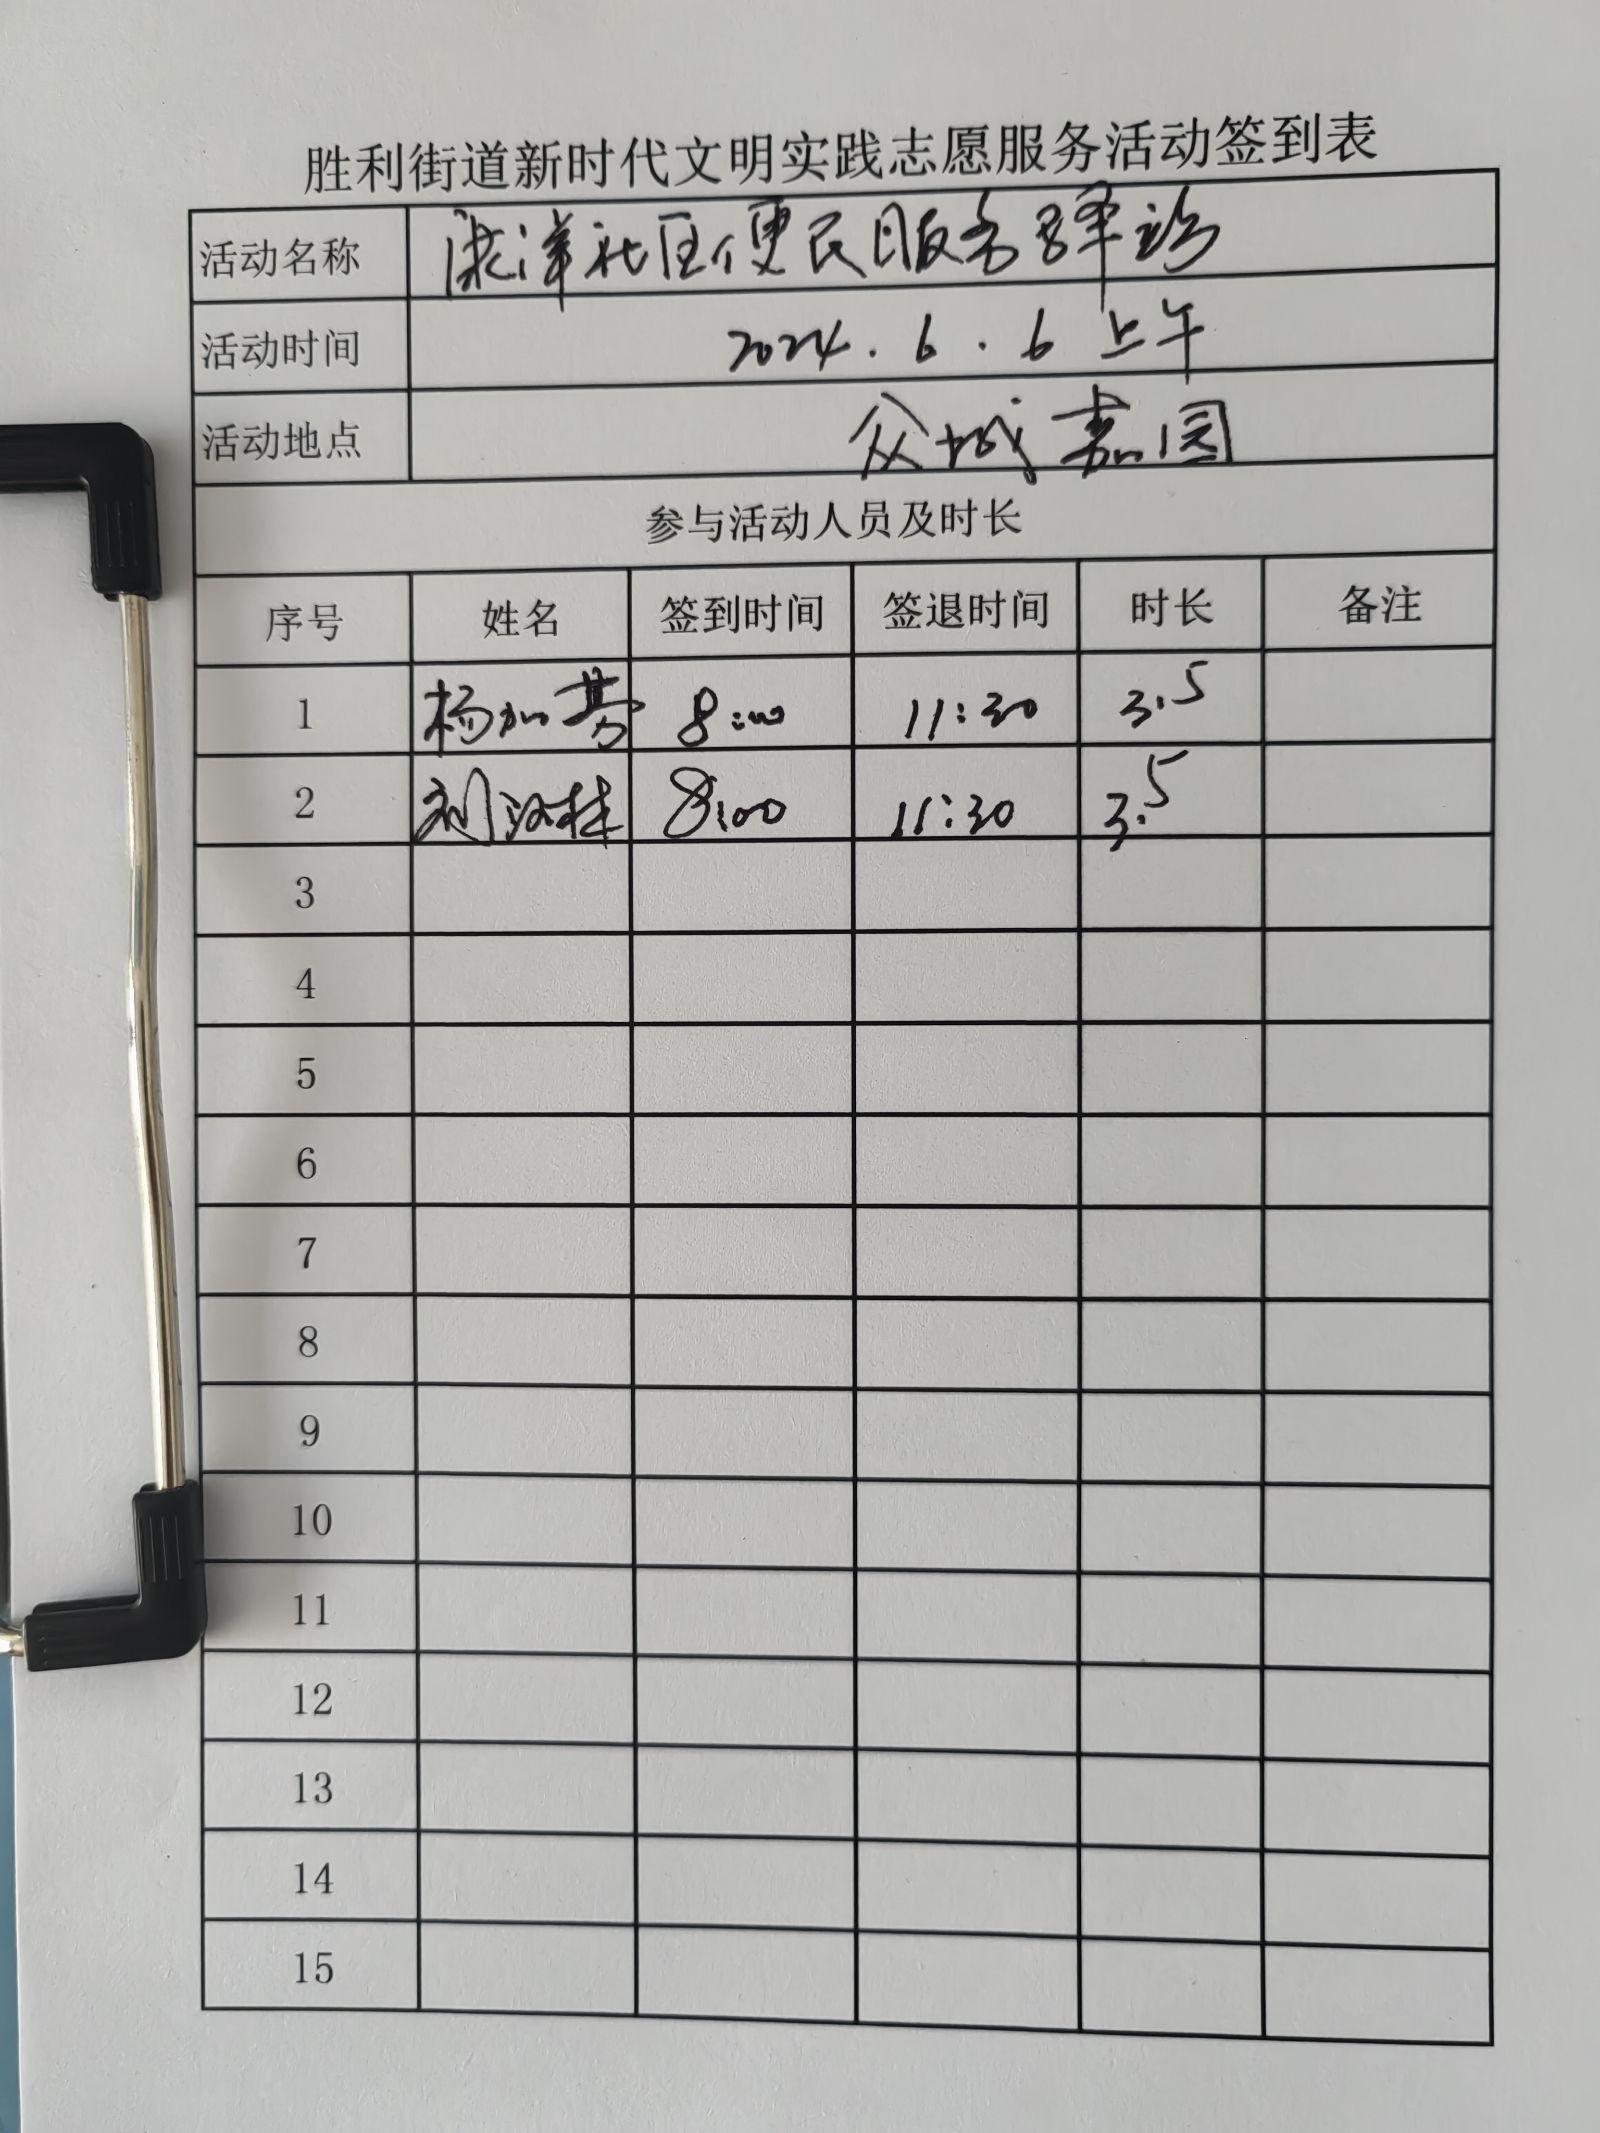 胜利街道新时代文明实践志愿服务活动签到表
活动名称 社区便民服务
活动时间 2024.6.6 上午
活动地点 众城嘉园
参与活动人员及时长
序号 姓名 签到时间 签退时间 时长 备注
1 杨加芬 8:00 11:30 3.5
2 刘汉桂 8:00 11:30 3.5
3
4
5
6
7
8
9
10
11
12
13
14
15